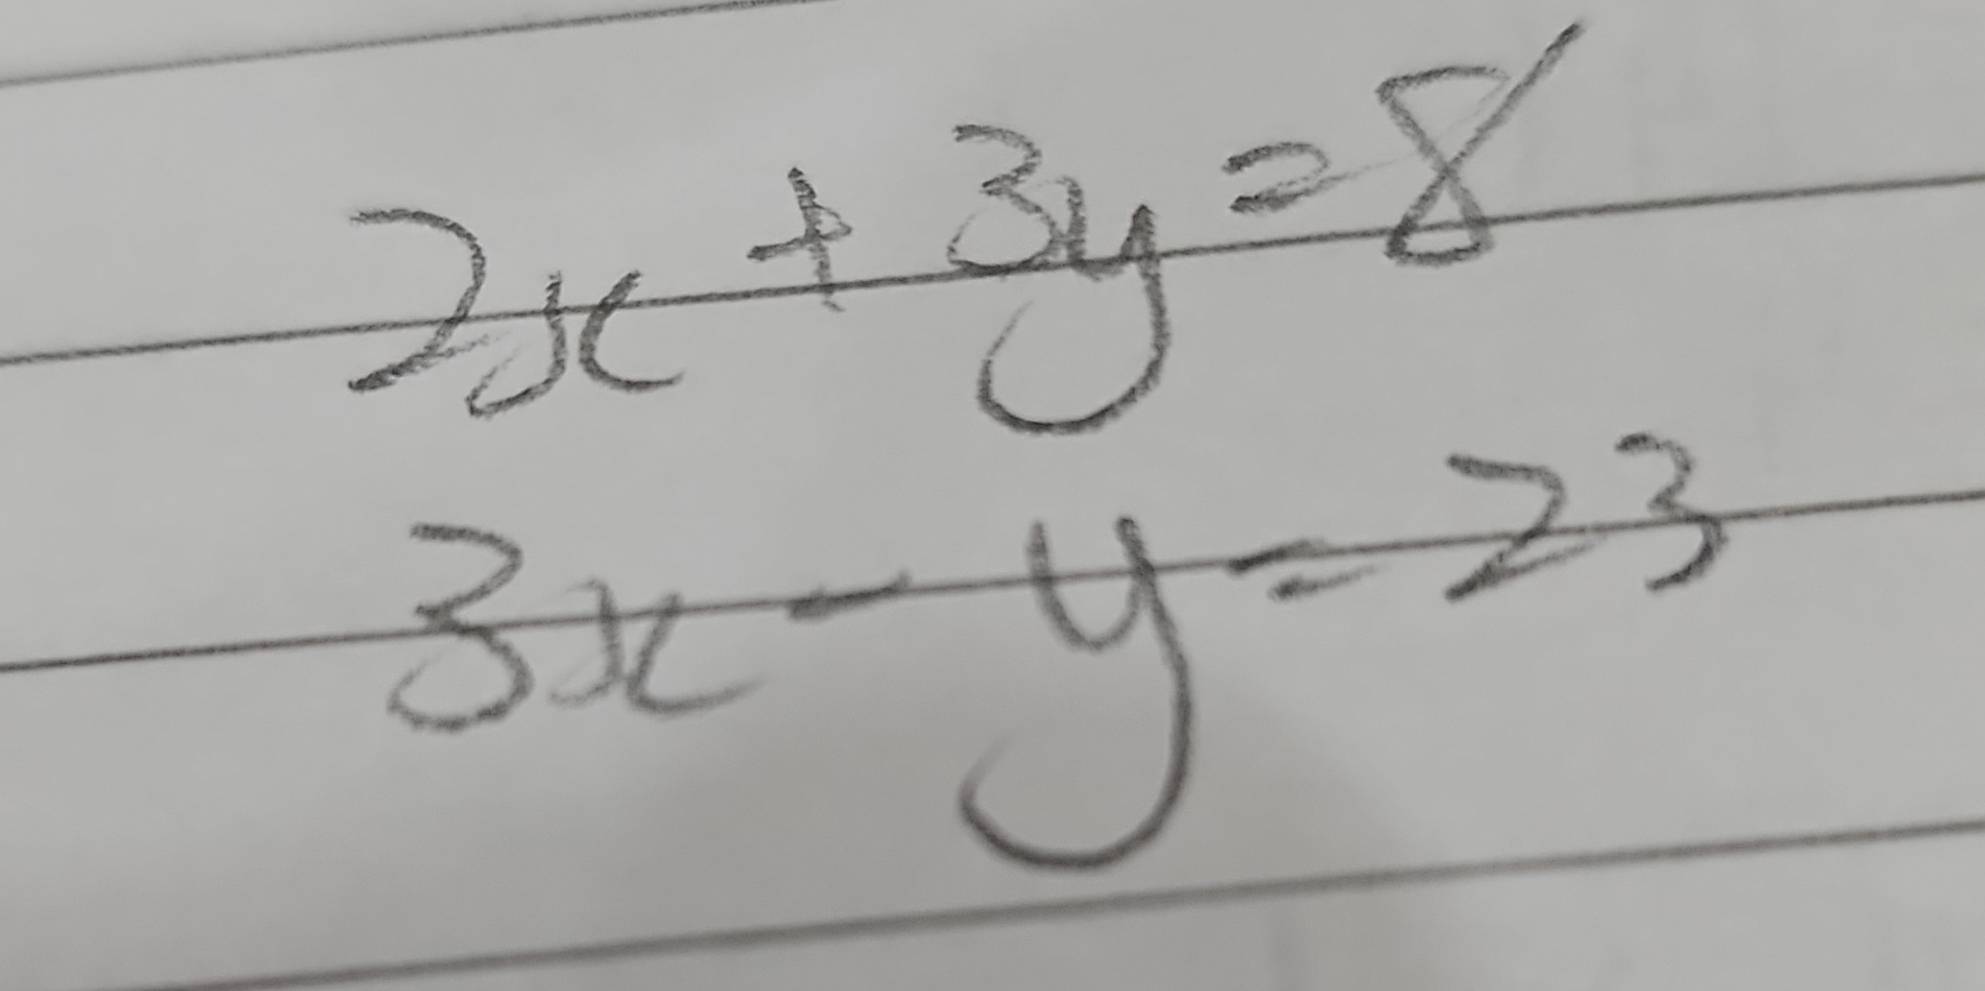 2x + 3y = 8
3x - y = 23